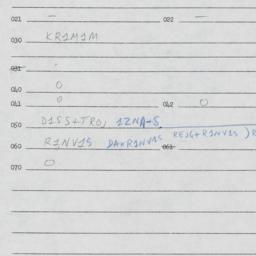 021 — 022 —
030 KR1M1M
031 -
040 0
041 0 042 0
050 D1SS+TRO, 1ZNA+S REJG+R1NV1S )R
060 R1NV1S DA*R1NV1S 061
070 0